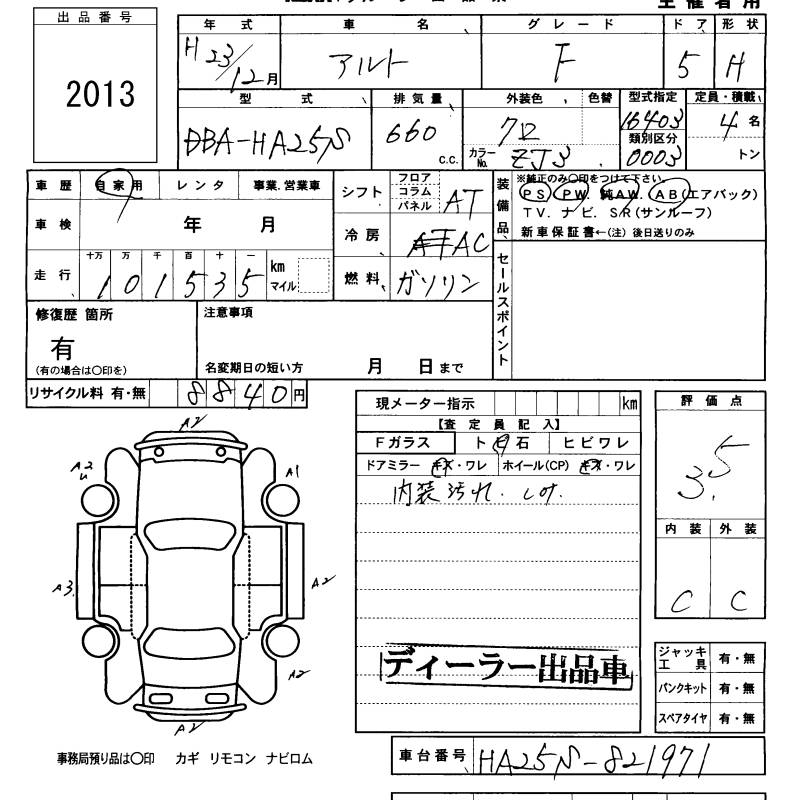 出品番号
2013
年式 車名 グレード ドア 形状
H23/12月 アルト F 5 H
型式 排気量 外装色 色替 型式指定 定員・積載
DBA-HA25S 660 C.C. 7D 16403 4名
カラーNo. ZJ3 類別区分 0003 トン
車歴 自家用 レンタ 事業.営業車
シフト フロア コラム パネル AT
装備品
※純正のみ〇印をつけて下さい。
PS PW 純AW. AB(エアバック)
TV. ナビ. SR(サンルーフ)
新車保証書←(注) 後日送りのみ
車検 年 月
冷房 AC
走行 十万 万 千 百 十 一
101535 km マイル
燃料 ガソリン
セールスポイント
修復歴 箇所
有
(有の場合は〇印を)
注意事項
名変期日の短い方 月 日まで
リサイクル料 有・無 8840円
現メーター指示 km
【査定員記入】
Fガラス ト日石 ヒビワレ
ドアミラー キズ・ワレ ホイール(CP) キズ・ワレ
内装汚れ. シミ.
評価点
3.5
内装 外装
C C
A2
A2
U
A1
A3
A2
A2
A2
ディーラー出品車
ジャッキ工具 有・無
パンクキット 有・無
スペアタイヤ 有・無
事務局預り品は〇印 カギ リモコン ナビロム
車台番号 HA25S-821971